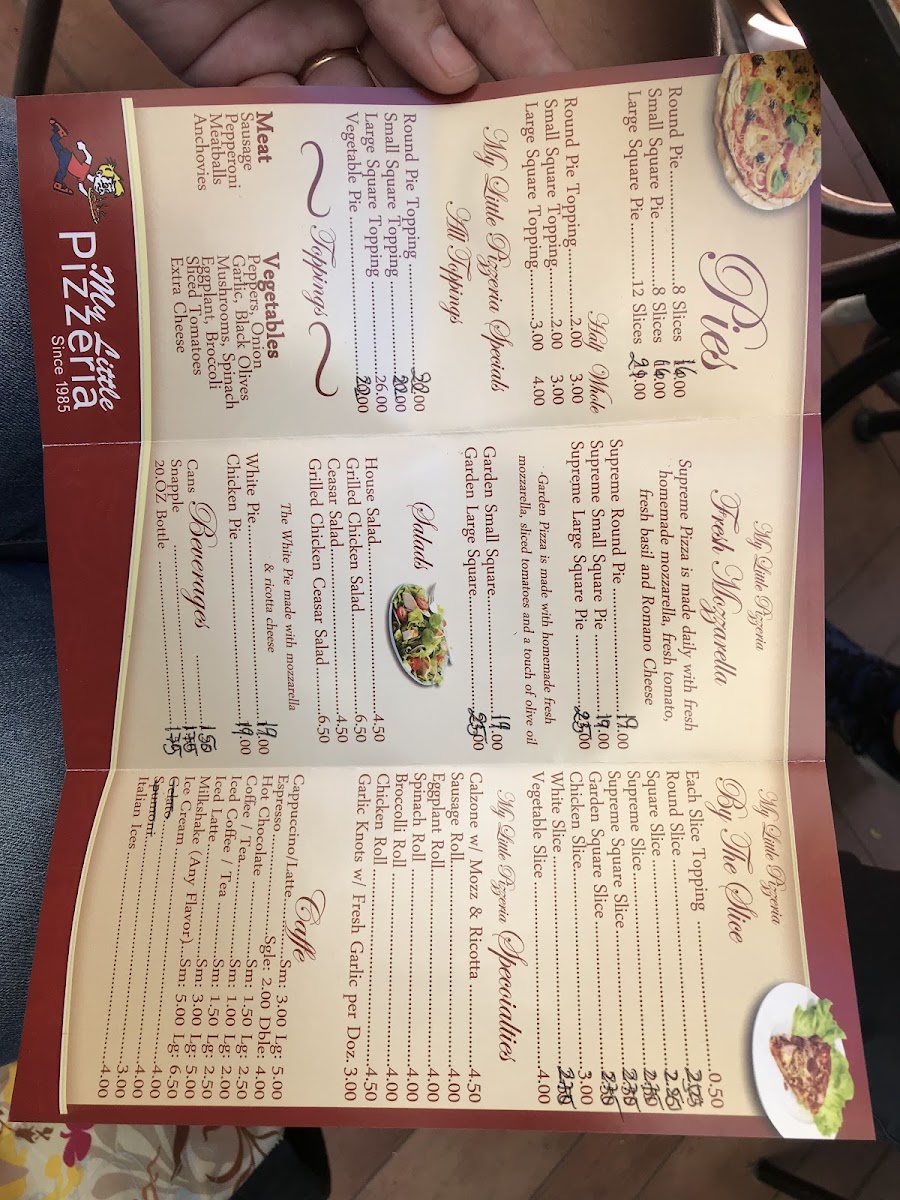 Pies
Round Pie....................8 Slices 16.00
Small Square Pie.........8 Slices 16.00
Large Square Pie..........12 Slices 21.00
Half Whole
Round Pie Topping..............2.00 3.00
Small Square Topping..........2.00 3.00
Large Square Topping..........3.00 4.00
My Little Pizzeria Specials
All Toppings
Round Pie Topping....................20.00
Small Square Topping...............20.00
Large Square Topping...............26.00
Vegetable Pie..........................20.00
Toppings
Meat
Sausage
Pepperoni
Meatballs
Anchovies
Vegetables
Peppers, Onion
Garlic, Black Olives
Mushrooms, Spinach
Eggplant, Broccoli
Sliced Tomatoes
Extra Cheese
My Little
Pizzeria
Since 1985
My Little Pizzeria
Fresh Mozzarella
Supreme Pizza is made daily with fresh
homemade mozzarella, fresh tomato,
fresh basil and Romano Cheese
Supreme Round Pie....................19.00
Supreme Small Square Pie...........19.00
Supreme Large Square Pie...........23.00
Garden Pizza is made with homemade fresh
mozzarella, sliced tomatoes and a touch of olive oil
Garden Small Square....................19.00
Garden Large Square....................25.00
Salads
House Salad..............................4.50
Grilled Chicken Salad.................6.50
Ceasar Salad..............................4.50
Grilled Chicken Ceasar Salad........6.50
The White Pie made with mozzarella
& ricotta cheese
White Pie..............................19.00
Chicken Pie............................19.00
Beverages
Cans ....................1.50
Snapple ....................1.75
20.OZ Bottle ....................1.75
My Little Pizzeria
By The Slice
Each Slice Topping ....................0.50
Round Slice
Square Slice
Supreme Slice
Supreme Square Slice
Garden Square Slice
Chicken Slice..............................3.00
White Slice
Vegetable Slice..............................4.00
My Little Pizzeria Specialties
Calzone w/ Mozz & Ricotta..........4.50
Sausage Roll..............................4.00
Eggplant Roll..............................4.00
Spinach Roll..............................4.00
Broccolli Roll..............................4.00
Chicken Roll..............................4.50
Garlic Knots w/ Fresh Garlic per Doz. 3.00
Caffe
Cappuccino/Latte ........Sm: 3.00 Lg: 5.00
Espresso....................Sgle: 2.00 Dble: 4.00
Hot Chocolate ..........Sm: 1.50 Lg: 2.50
Coffee / Tea..............Sm: 1.00 Lg: 2.00
Iced Coffee / Tea ......Sm: 1.50 Lg: 2.50
Iced Latte..................Sm: 3.00 Lg: 5.00
Milkshake (Any Flavor)...Sm: 5.00 Lg: 6.50
Ice Cream ..............................4.00
Gelato....................................3.00
Spumoni.................................4.00
Italian Ices..............................4.00